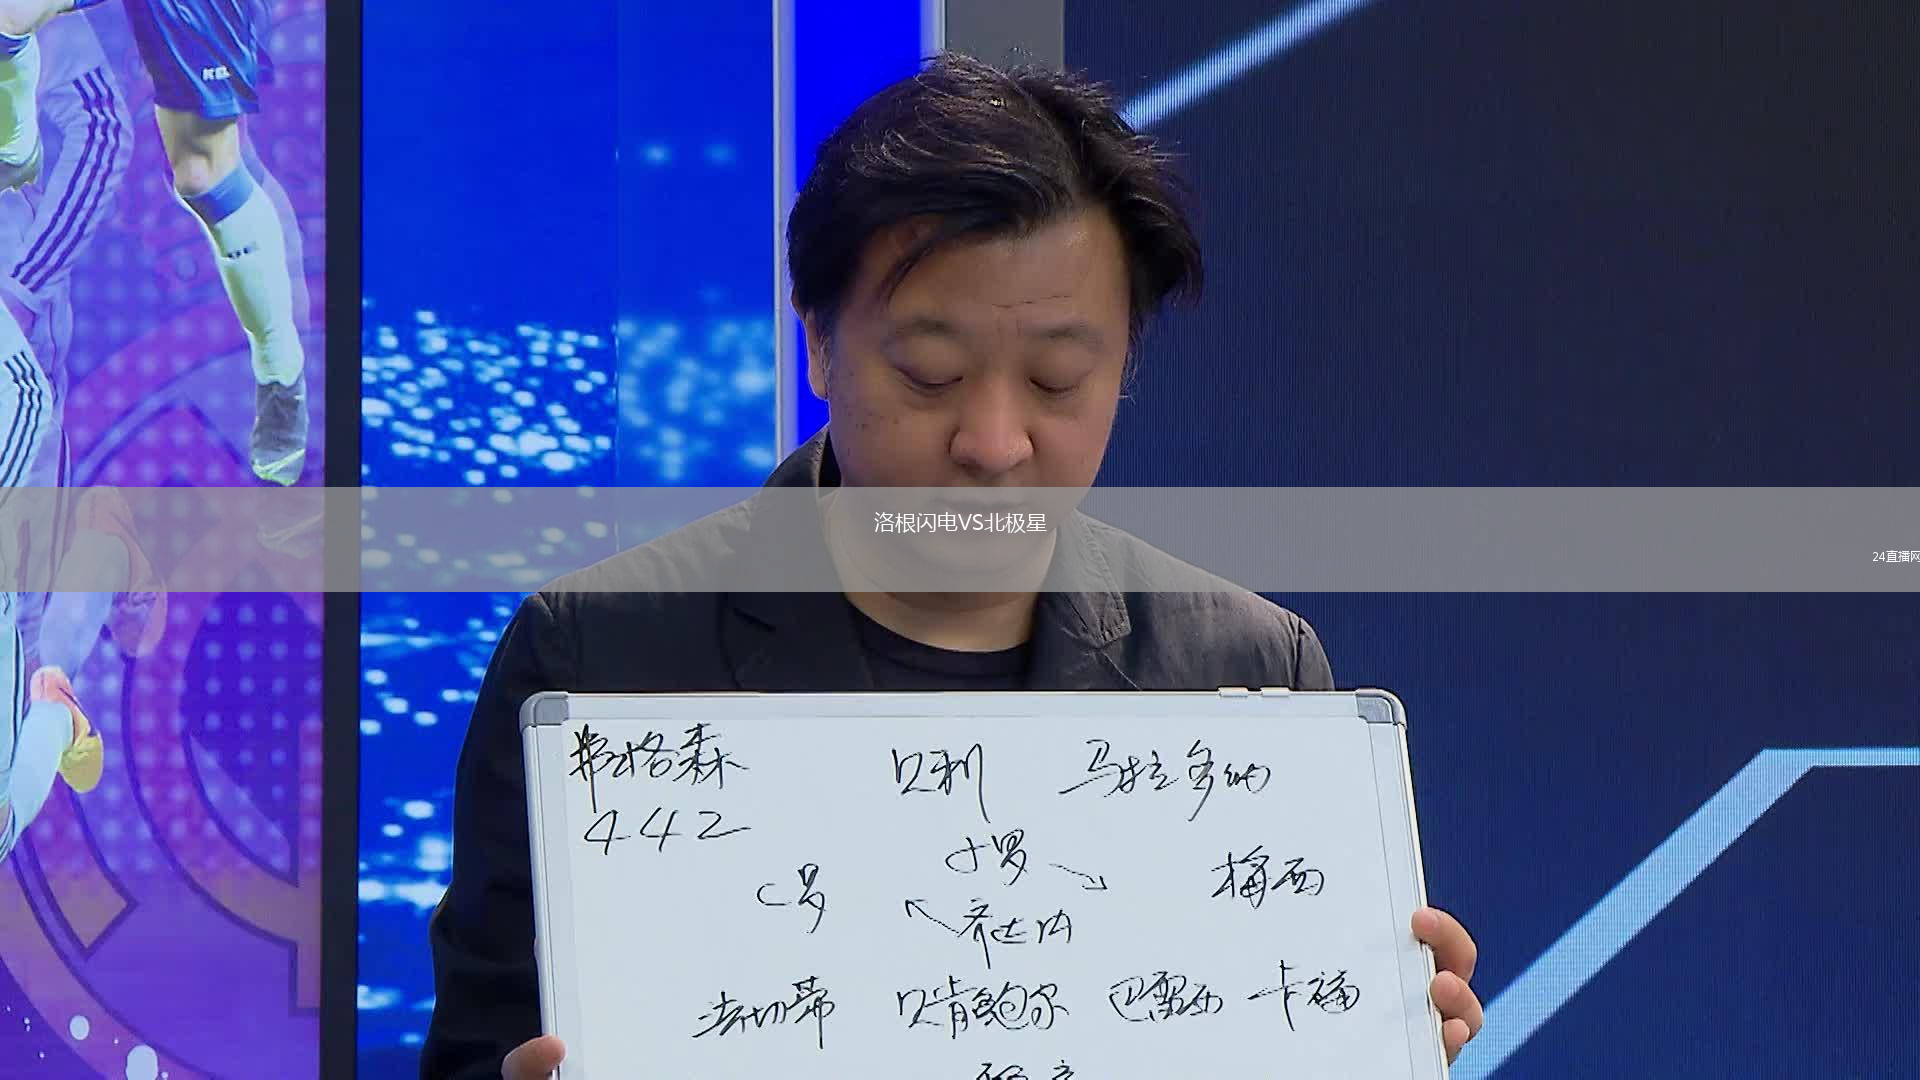 KB
洛根闪电VS北极星
24直播网
弗格森 贝利 马拉多纳
442
小罗
C罗 梅西
齐达内
法切蒂 贝肯鲍尔 巴雷西 卡福